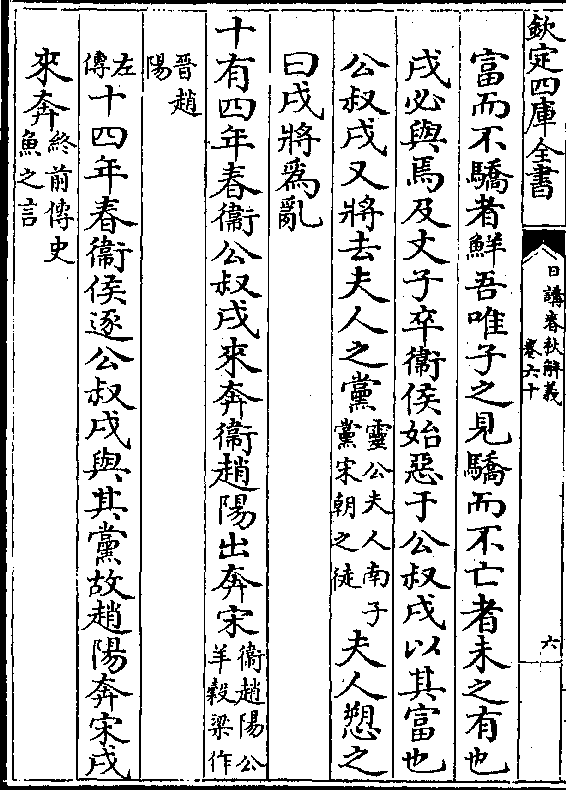 欽定四庫全書
日講春秋解義
卷六十
六
富而不驕者鮮吾唯子之見驕而不亡者未之有也
戌必與焉及文子卒衛侯始惡于公叔戌以其富也
公叔戌又將去夫人之黨靈公夫人南子黨宋朝之徒夫人愬之
曰戌將爲亂
十有四年春衞公叔戌來奔衞趙陽出奔宋衞趙陽公羊穀梁作
晉趙陽
左傳十四年春衞侯逐公叔戌與其黨故趙陽奔宋戌
來奔終前傳史魚之言